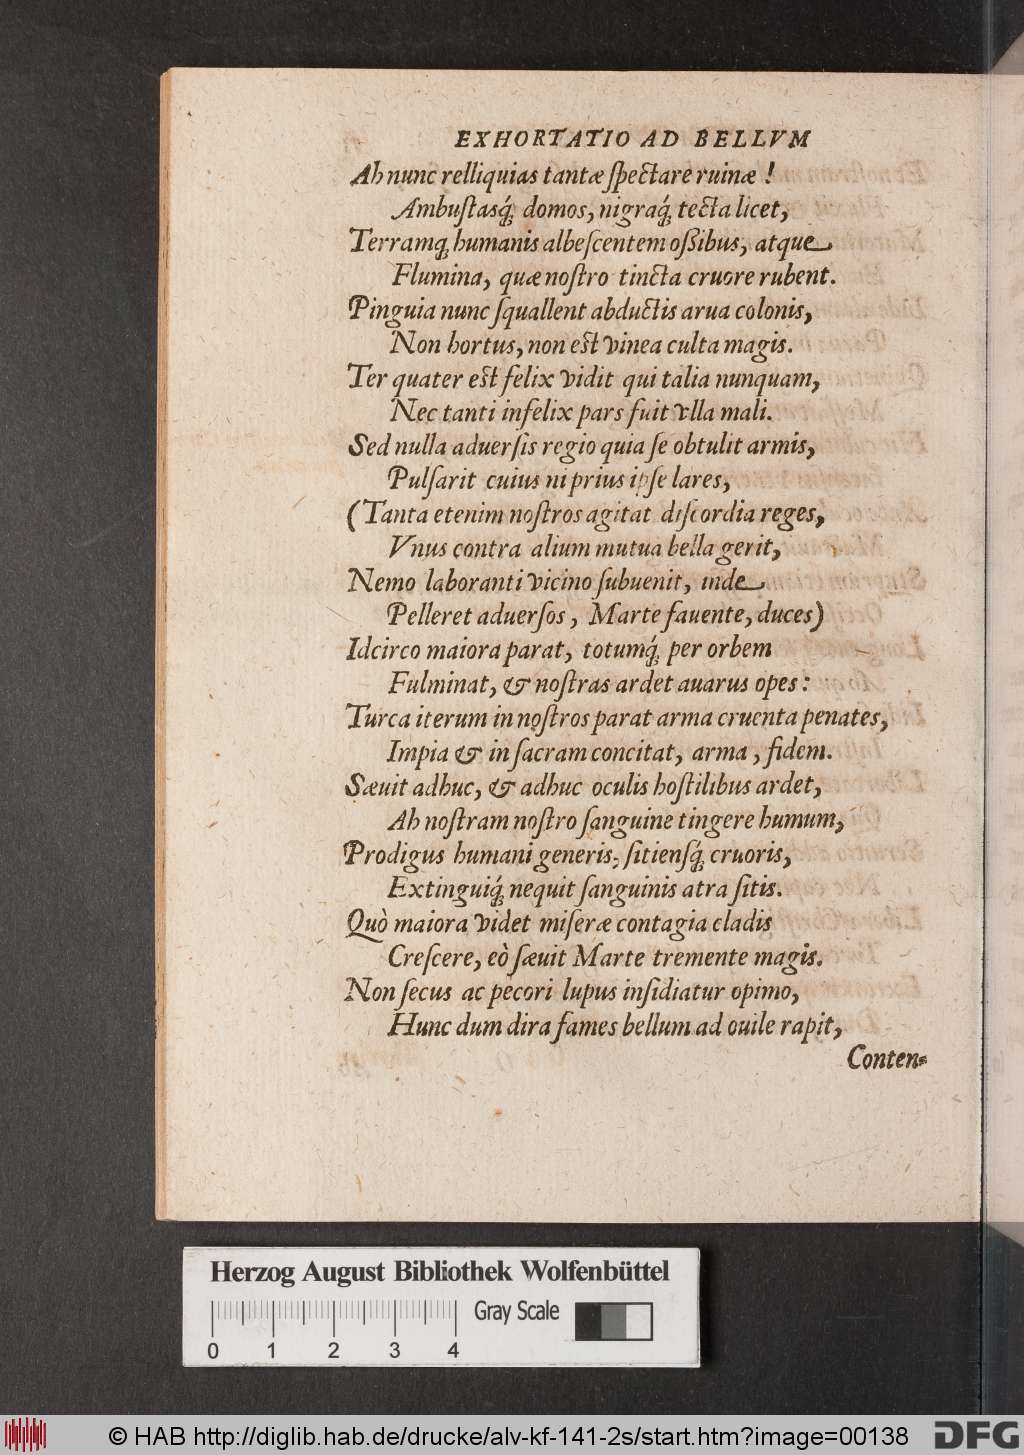 EXHORTATIO AD BELLVM
Ah nunc relliquias tantæ ſpectare ruinæ !
Ambuſtasq́; domos, nigraq́; tecta licet,
Terramq́; humanis albeſcentem oßibus, atque
Flumina, quæ noſtro tincta cruore rubent.
Pinguia nunc ſquallent abductis arua colonis,
Non hortus, non est vinea culta magis.
Ter quater est felix vidit qui talia nunquam,
Nec tanti infelix pars fuit vlla mali.
Sed nulla aduerſis regio quia ſe obtulit armis,
Pulſarit cuius ni prius ipſe lares,
(Tanta etenim noſtros agitat diſcordia reges,
Vnus contra alium mutua bella gerit,
Nemo laboranti vicino ſubuenit, inde
Pelleret aduerſos, Marte fauente, duces)
Idcirco maiora parat, totumq́; per orbem
Fulminat, & noſtras ardet auarus opes:
Turca iterum in noſtros parat arma cruenta penates,
Impia & in ſacram concitat, arma, fidem.
Sæuit adhuc, & adhuc oculis hoſtilibus ardet,
Ah noſtram noſtro ſanguine tingere humum,
Prodigus humani generis, ſitiensq́; cruoris,
Extinguiq́; nequit ſanguinis atra ſitis.
Quò maiora videt miſeræ contagia cladis
Creſcere, eò ſæuit Marte tremente magis.
Non ſecus ac pecori lupus inſidiatur opimo,
Hunc dum dira fames bellum ad ouile rapit,
Conten-
Herzog August Bibliothek Wolfenbüttel
Gray Scale
0 1 2 3 4
© HAB http://diglib.hab.de/drucke/alv-kf-141-2s/start.htm?image=00138
DFG